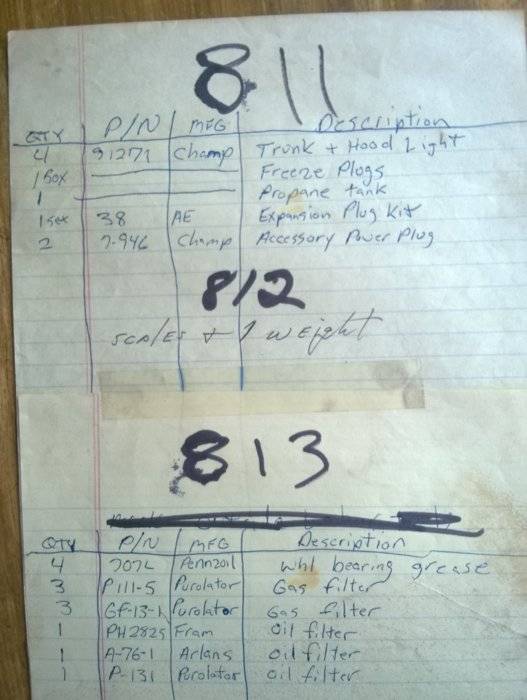 811
QTY P/N MFG Description
4 91271 Champ Trunk + Hood Light
1 Box Freeze Plogs
1 Propane tank
1 set 38 AE Expansion Plug Kit
2 7-946 Champ Accessory Power Plug
812
scales + 1 weight
813
QTY P/N MFG Description
4 Pennzoil Whl bearing grease
3 P111-5 Purolator Gas filter
3 GF-13-1 Purolator Gas filter
1 PH2825 Fram Oil filter
1 A-76-1 Arlans Oil filter
1 P-131 Purolator Oil filter